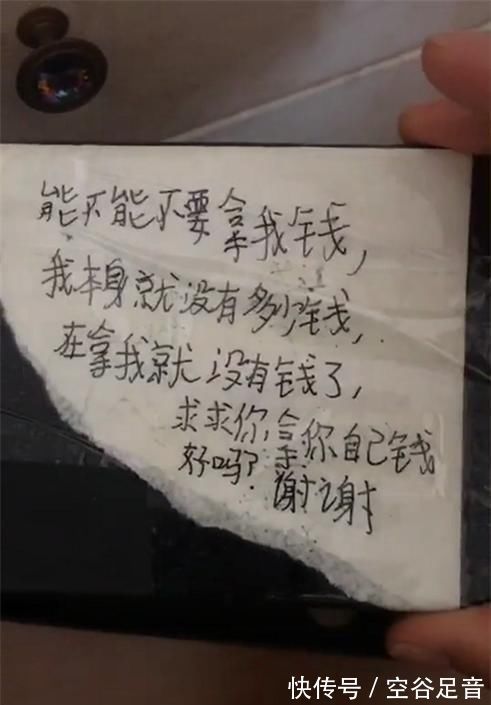 能不能不要拿我钱，
我本身就没有多少钱，
在拿我就没有钱了，
求求你，拿你自己钱
好吗？谢谢
快传号 / 空谷足音